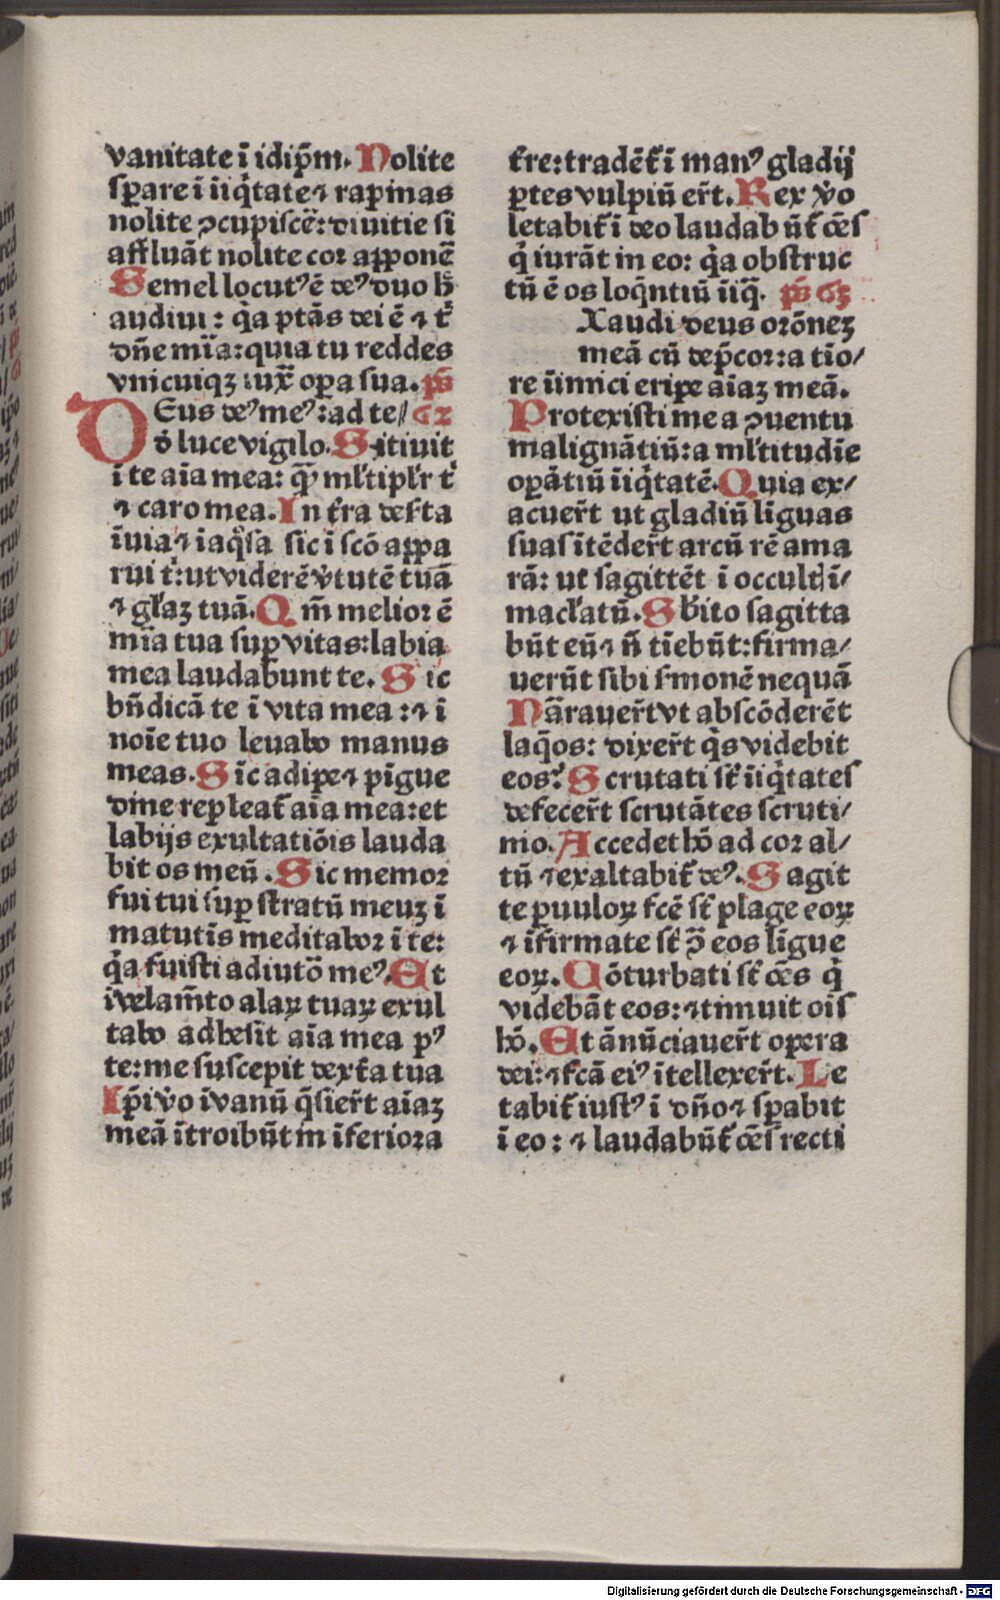 vanitate ī idip̄m. Nolite
sꝑare ī iiq̄tate ⁊ rapinas
nolite ꝯcupiscē: diuitie si
affluāt nolite cor apponē
Semel locutꝰ ē deꝰ duo h̄
audiui: q̄a ptās dei ē ⁊ t̄
dn̄e mīa: quia tu reddes
vnicuiqꝫ iux̄ oꝑa sua. ps̄
DEus deꝰ meꝰ: ad te / 62
d̄ luce vigilo. Sitiuit
ī te aīa mea: q̄ꝫ ml̄tipl̄r t̄
⁊ caro mea. In t̄ra des̄ta
īuia ⁊ īaq̄sa sic ī scō appa
rui t̄: ut viderē v̄tutē tuā
⁊ gl̄aꝫ tuā. Qm̄ melior ē
mīa tua suꝑ vitas: labia
mea laudabunt te. Sic
bn̄dicā te ī vita mea: ⁊ ī
noīe tuo leuabo manus
meas. Sic adipe ⁊ pīgue
dīne repleat̄ aīa mea: et
labijs exultatiōis lauda
bit os meū. Sic memor
fui tui suꝑ stratū meuꝫ ī
matutīs meditabor ī te:
q̄a fuisti adiutō meꝰ. Et
ī velam̄to alaꝝ tuaꝝ exul
tabo adhesit aīa mea pꝰ
te: me suscepit dext̄a tua
Ip̄i v̄o ī vanū q̄sier̄t aīaꝫ
meā ītroibūt in īferiora
t̄re: tradēt̄ ī manꝰ gladij
ꝑtes vulpiū er̄t. Rex v̄o
letabit̄ ī deo laudabūt̄ oēs
q̄ iurāt in eo: q̄a obstruc
tū ē os loq̄ntiū iiq̄. ps̄ 63
Xaudi deus orōneꝫ
meā cū dep̄cor: a tīo/
re īimici eripe aīaꝫ meā.
Protexisti me a ꝯuentu
malignātiū: a ml̄titudīe
oꝑātiū iiq̄tatē. Quia ex/
acuer̄t ut gladiū līguas
suas ītēder̄t arcū rē ama
rā: ut sagittēt ī occult̄ ī/
macl̄atū. Sb̄ito sagitta
būt eū ⁊ n̄ tīebūt: firma/
uerūt sibi s̄monē nequā
Nārauer̄t vt abscōderēt
laq̄os: dixer̄t q̄s videbit
eos? Scrutati st̄ iiq̄tates
defecer̄t scrutātes scruti/
nio. Accedet hō ad cor al/
tū ⁊ exaltabit̄ deꝰ. Sagit
te ꝑuuloꝝ fcē st̄ plage eoꝝ
⁊ īfirmate st̄ ꝯ̄ eos līgue
eoꝝ. Cōturbati st̄ oēs q̄
videbāt eos: ⁊ timuit oīs
hō. Et ānūciauer̄t opera
dei: ⁊ fcā eiꝰ ītellexer̄t. Le
tabit̄ iustꝰ ī dn̄o ⁊ sꝑabit
ī eo: ⁊ laudabūt̄ oēs recti
Digitalisierung gefördert durch die Deutsche Forschungsgemeinschaft - DFG